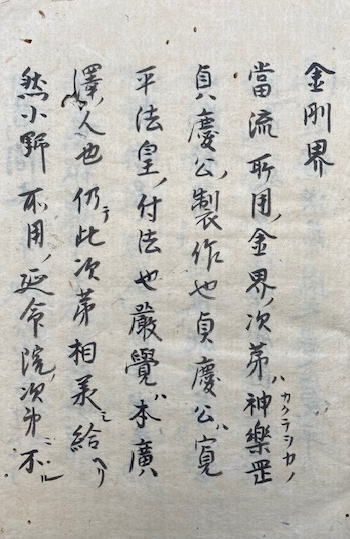 金剛界
當流所用ノ金界ノ次第ハ神樂岡
貞慶公ノ製作也貞慶公ハ寛
平法皇ノ付法也嚴覺ハ本廣
澤ノ人也仍テ此次第相承シ給ヘリ
然小野所用ノ延命院ノ次第ニハ不ル